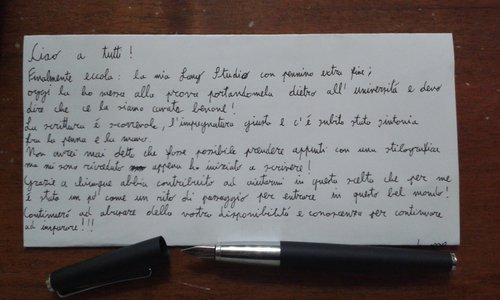 Ciao a tutti!
Finalmente eccola: la mia Lamy Studio con pennino extra fine;
oggi la ho messa alla prova portandomela dietro all' università e devo
dire che ce la siamo cavata benone!
La scrittura é scorrevole, l'impugnatura giusta e c'é subito stata sintonia
fra la penna e la mano.
Non avrei mai detto che fosse possibile prendere appunti con una stilografica
ma mi sono ricreduto appena ho iniziato a scrivere!
Grazie a chiunque abbia contribuito ad aiutarmi in questa scelta che per me
é stato un po' come un rito di passaggio per entrare in questo bel mondo!
Continuerò ad abusare della vostra disponibilità e conoscenza per continuare
ad imparare!!!